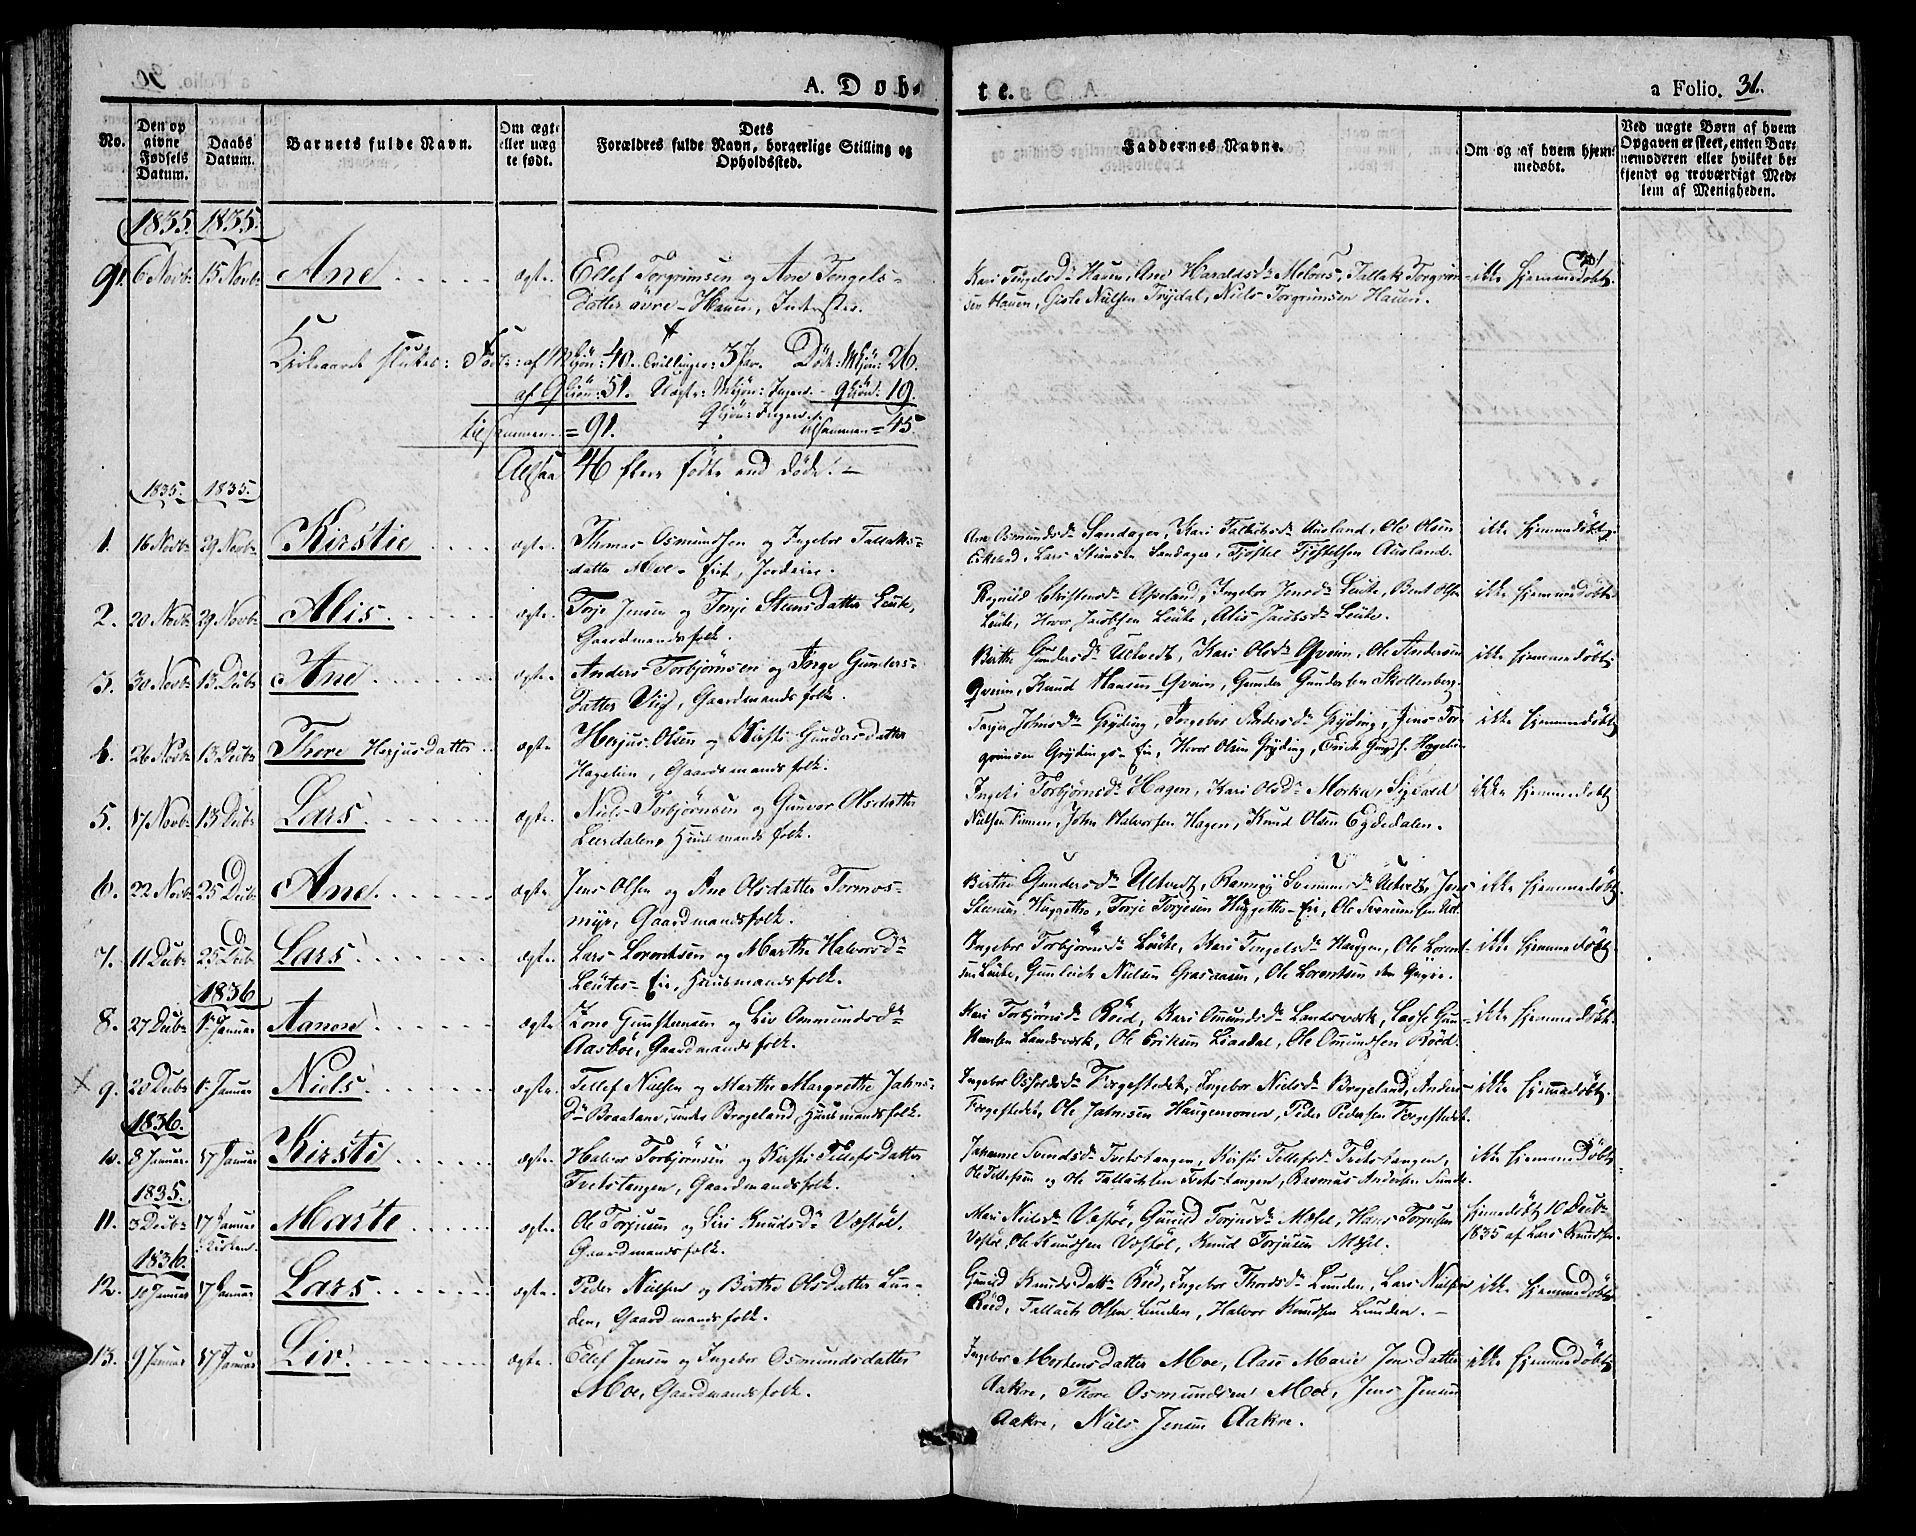 A. Döb-
te.
a Folio. 31.
No.
Den opgivne Födsels Datum.
Daabs Datum.
Barnets fulde Navn.
Om ægte eller uægte født.
Dets Forældres fulde Navn, borgerlige Stilling og Opholdssted.
Faddernes Navne.
Om og af hvem hjemmedøbt.
Ved uægte Børn af hvem Opgaven er skeet, enten Barnemoderen eller hvilket bekjendt og troværdigt Medlem af Menigheden.
1835. 1835.
91. 6 Novbr 15 Novbr Ane ægte. Ellef Torgrimsen og Ane Tengels-
Datter øvre-Hauen, Inderster.
Kari Tengelsdr Hauen, Ane Haraldsdr Melaas, Tallak Torgrim-
sen Hauen, Gisle Nielsen Trydal, Niels Torgrimsen Hauen.
ikke hjemmedøbt.
Kirkeaaret sluttes: Födte: af Mkjön: 40. Tvillinger: 3 Par. Döde: Mkjön: 26.
af Qkjön: 51. Uægte: Mkjön: Ingen. Qkjön: 19.
Qkjön: Ingen.
tilsammen = 91. tilsammen = 45.
Altsaa 46 flere fødte end døde! -
1835. 1835.
1. 16 Novbr 29 Novbr Kirstie ægte. Thomas Osmundsen og Ingebor Tallaks-
datter Moe-Eie, Jordeier.
Ane Osmundsdr Sandager, Kari Tallaksdr Ausland, Ole Olsen
Eskeland, Lars Steensen Sandager, Tjöstel Tjöstelsen Ausland.
ikke hjemmedøbt.
2. 20 Novbr 29 Novbr Alis ægte. Terje Jensen og Terje Steensdatter Leute,
Gaardmandsfolk.
Ragnild Christensdr Apeland, Ingebor Jensdr Leute, Bent Olsen
Leute, Hover Jacobsen Leute, Alis Jacobsdr Leute.
ikke hjemmedøbt
3. 30 Novbr 13 Decbr Ane ægte. Anders Torbjørnsen og Inge Gunders-
Datter Vig, Gaardmandsfolk.
Birthe Gundersdr Utvedt, Kari Olsdr Qveim, Ole Andersen
Qveim, Knud Hansen Qveim, Gunder Gundersen Skollenberg.
ikke hjemmedøbt
4. 26 Novbr 13 Decbr Thore Herjusdatter ægte Herjus Olsen og Kirsti Gundersdatter
Hagelien, Gaardmandsfolk.
Tarjer Johnsdr Gryting, Ingebor Andersdr Gryting, Jens Tor-
grimsen Grytings-Eie, Hover Olsen Gryting, Hagelien.
ikke hjemmedøbt
5. 17 Novbr 13 Decbr Lars ægte. Niels Torbjørnsen og Gunvor Olsdatter
Leerdalen, Huusmandsfolk.
Ingeri Torbjørnsdr Hagen, Kari Olsdr Morka, Sigvald
Nielsen, John Halvorsen Hagen, Knud Olsen Egdedalen.
ikke hjemmedøbt
6. 22 Novbr 25 Decbr Ane ægte. Jens Olsen og Ane Olsdatter Tormos-
myr, Gaardmandsfolk.
Birthe Gundersdr Utvedt, Svenumsdr Utvedt, Jens
Steensen Huggetho, Terje Terjesen Huggetho-Eie, Ole
ikke hjemmedøbt.
7. 11 Decbr 25 Decbr Lars ægte. Lars Lorentsen og Marthe Halvorsdr
Leutes-Eie, Huusmandsfolk.
Ingebor Torbjørnsdr Leute, Kari Tengelsdr Haugen, Ole Lorent-
sen Leute, Gunleich Nielsen Graaaasen, Ole Lorentsen den Yngre.
ikke hjemmedøbt.
1836
8. 27 Decbr 1 Januar Aanon ægte. Zone Gunstensen og Liv Omundsdr
Aasböe, Gaardmandsfolk.
Kari Torbjörnsdr Röed, Kari Omundsdr Landsverk, Lasse Gun-
stensen Landsverk, Ole Eriksen Liaadal, Ole Omundsen Röed.
ikke hjemmedøbt.
9. 20 Decbr 6 Januar Niels ægte. Tellef Nielsen og Marthe Margrethe Jahns-
Dr Braatane, under Brogeland, Huusmandsfolk.
Ingebor Osuldsdr Torgestedet, Ingebor Nielsdr Brogeland, Anders
Torgestedet, Ole Jahnsen Haugemonen, Peder Pedersen Torgestedet.
ikke hjemmedøbt.
1836.
10. 8 Januar 17 Januar Kirsti ægte. Halvor Torbjörnsen og Kirsti Tellefsdatter
Tvetstangen, Gaardmandsfolk.
Johanne Svendsdr Tvetstangen, Kirsti Tellefsdr Tvetstangen,
Ole Tellefsen og Ole Tallachsen Tvetstangen, Rasmus Andersen Sunde.
ikke hjemmedøbt.
1835.
11. 3 Decbr 17 Januar i Kirken. Marte ægte. Ole Torjusen og Siri Knudsdr Vastöl.
Gaardmandsfolk.
Mari Nielsdr Vastöl, Gunild Torjusdr Mæsel, Hans Torjusen
Vastöl, Ole Knudsen Vastöl, Knud Torjusen Mæsel.
hjemmedøbt 10 Decbr
1835 af Lars Knudsen.
1836.
12. 10 Januar 17 Januar Lars ægte. Peder Nielsen og Birthe Olsdatter Lun-
den, Gaardmandsfolk.
Gunild Knudsdatter Röed, Ingebor Thordsdr Lunden, Lars Nielsen
Röed, Tallach Olsen Lunden, Halvor Knudsen Lunden. -
ikke hjemmedøbt
13. 9 Januar 17 Januar Liv. ægte. Ellef Jensen og Ingebor Osmundsdatter
Moe, Gaardmandsfolk.
Ingebor Mortensdatter Moe, Aase Marie Jensdatter
Aakre, Thore Osmundsen Moe, Jens Jensen
Aakre, Niels Jensen Aakre.
ikke hjemmedøbt